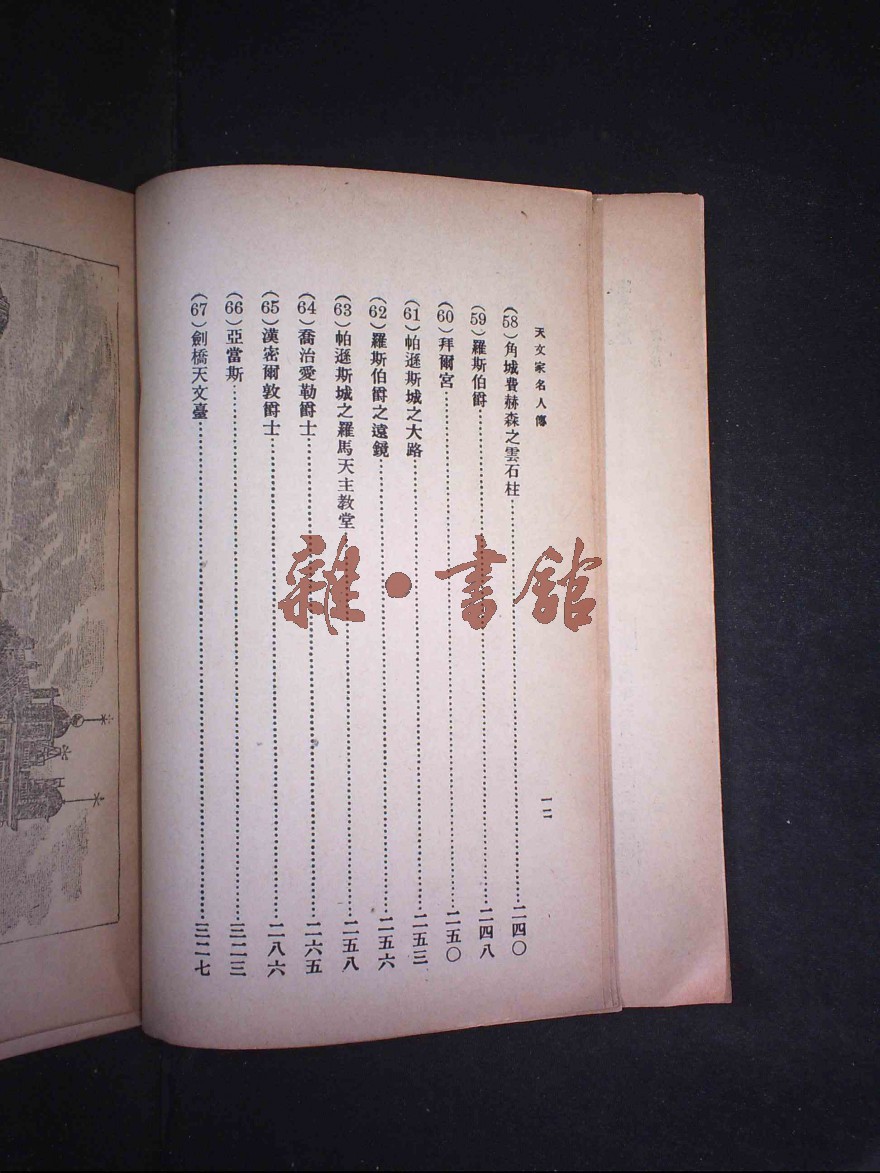 天文家名人傳
一二
(58)角城費赫森之雲石柱……二四〇
(59)羅斯伯爵……二四八
(60)拜爾宮……二五〇
(61)帕遜斯城之大路……二五三
(62)羅斯伯爵之遠鏡……二五六
(63)帕遜斯城之羅馬天主教堂……二五八
(64)喬治愛勒爵士……二六五
(65)漢密爾敦爵士……二八六
(66)亞當斯……三二三
(67)劍橋天文臺……三二七
雜·書館